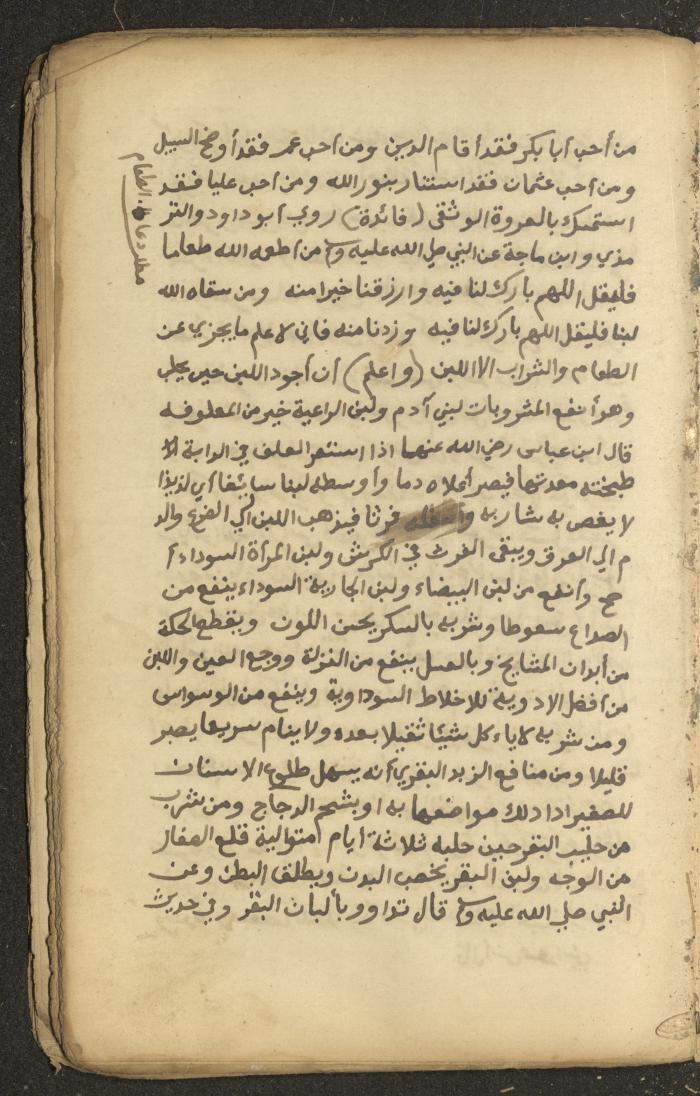 من أحب أبا بكر فقد أقام الدين ومن أحب عمر فقد أوضح السبيل
ومن أحب عثمان فقد استنار بنور الله ومن أحب عليا فقد
استمسك بالعروة الوثقى (فائدة) روى أبو داود والتر
مذي وابن ماجة عن النبي صلى الله عليه وسلم من أطعمه الله طعاما
فليقل اللهم بارك لنا فيه وارزقنا خيرا منه ومن سقاه الله
لبنا فليقل اللهم بارك لنا فيه وزدنا منه فاني لا علم ما يجزي عن
الطعام والشراب الا اللبن (واعلم) أن أجود اللبن حين يحلب
وهو أنفع المشروبات لبني آدم ولبن الراعية خير من المعلوفه
قال ابن عباس رضي الله عنهما اذا استقر العلف في الدابة
طبخته معدتها فيصر أعلاه دما وأوسطه لبنا سايغا أي لذيذا
لا يغص به شاربه وأسفله فرثا فيذهب اللبن الى الضرع والد
م الى العرق ويبقى الفرث في الكرش ولبن المرأة السوداء أ
صح وأنفع من لبن البيضاء ولبن الجارية السوداء ينفع من
الصداع سعوطا وشربه بالسكر يحسن اللون ويقطع الحكة
من أبدان المشايخ وبالعسل ينفع من النزلة ووجع العين واللبن
من أفضل الادوية للاخلاط السوداوية وينفع من الوسواس
ومن شربه لا ياءكل شيئا ثقيلا بعده ولا ينام سريعا يصبر
قليلا ومن منافع الزبد البقري أنه يسهل طلوع الاسنان
للصغير اذا دلك مواضعها به أو بشحم الدجاج ومن شرب
من حليب البقر حين حلبه ثلاثة أيام متوالية قلع الصفار
من الوجه ولبن البقر يخصب البدن ويطلق البطن وعن
النبي صلى الله عليه وسلم قال تداووا بألبان البقر وفي حديث
مطلب دعاء الطعام